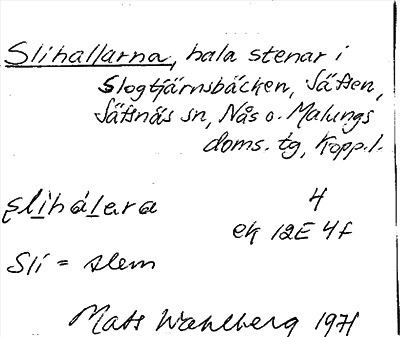 Slihallarna, hala stenar i
Slogtjärnsbäcken, Säfsen,
Säfsnäs sn, Nås o. Malungs
doms. tg, Kopp. l.
slihálara 4
ek 12E 4f
Sli = slem
Mats Wahlberg 1971